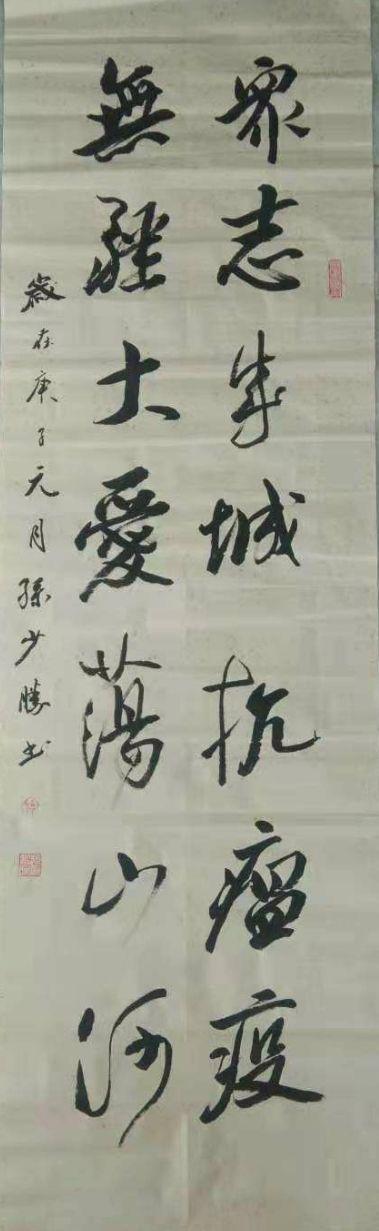 眾志成城抗瘟疫
無疆大愛蕩山河
歲在庚子元月孫少勝書